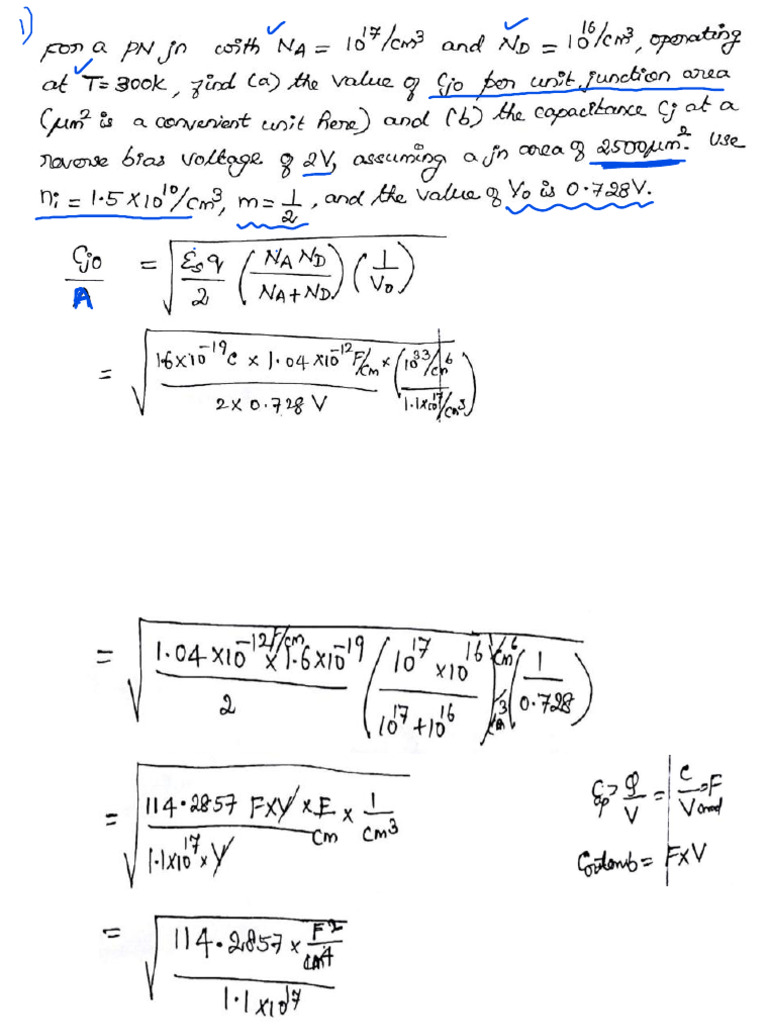 1) For a PN jn with NA = 10^17/cm^3 and ND = 10^16/cm^3, operating
at T=300k, find (a) the value of Cjo per unit junction area
(μm^2 is a convenient unit here) and (b) the capacitance Cj at a
reverse bias voltage of 2V, assuming a jn area of 2500μm^2. Use
ni = 1.5×10^10/cm^3, m = 1/2, and the value of Vo is 0.728V.
Cjo/A = √(Ɛs q/2 (NA ND/NA+ND) (1/Vo))
= √(1.6×10^-19 C × 1.04×10^-12 F/cm/2×0.728 V × (10^33/cm^6/1.1×10^17/cm^3))
= √(1.04×10^-12 F/cm × 1.6×10^-19/2 (10^17×10^16 1/cm^6/10^17+10^16 1/cm^3) (1/0.728))
= √(114.2857 F×V×F/cm × 1/cm^3/1.1×10^17×V)
Q/V = C/V = F
= F×V
= √(114.2857 × F^2/cm^4/1.1×10^17)